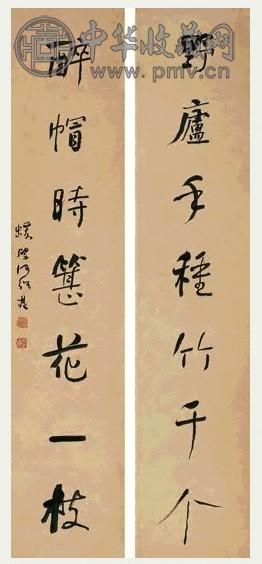 中华收藏网
www.pmv.cn
野廬手種竹千个
醉帽時簪花一枝
蝯叟何紹基